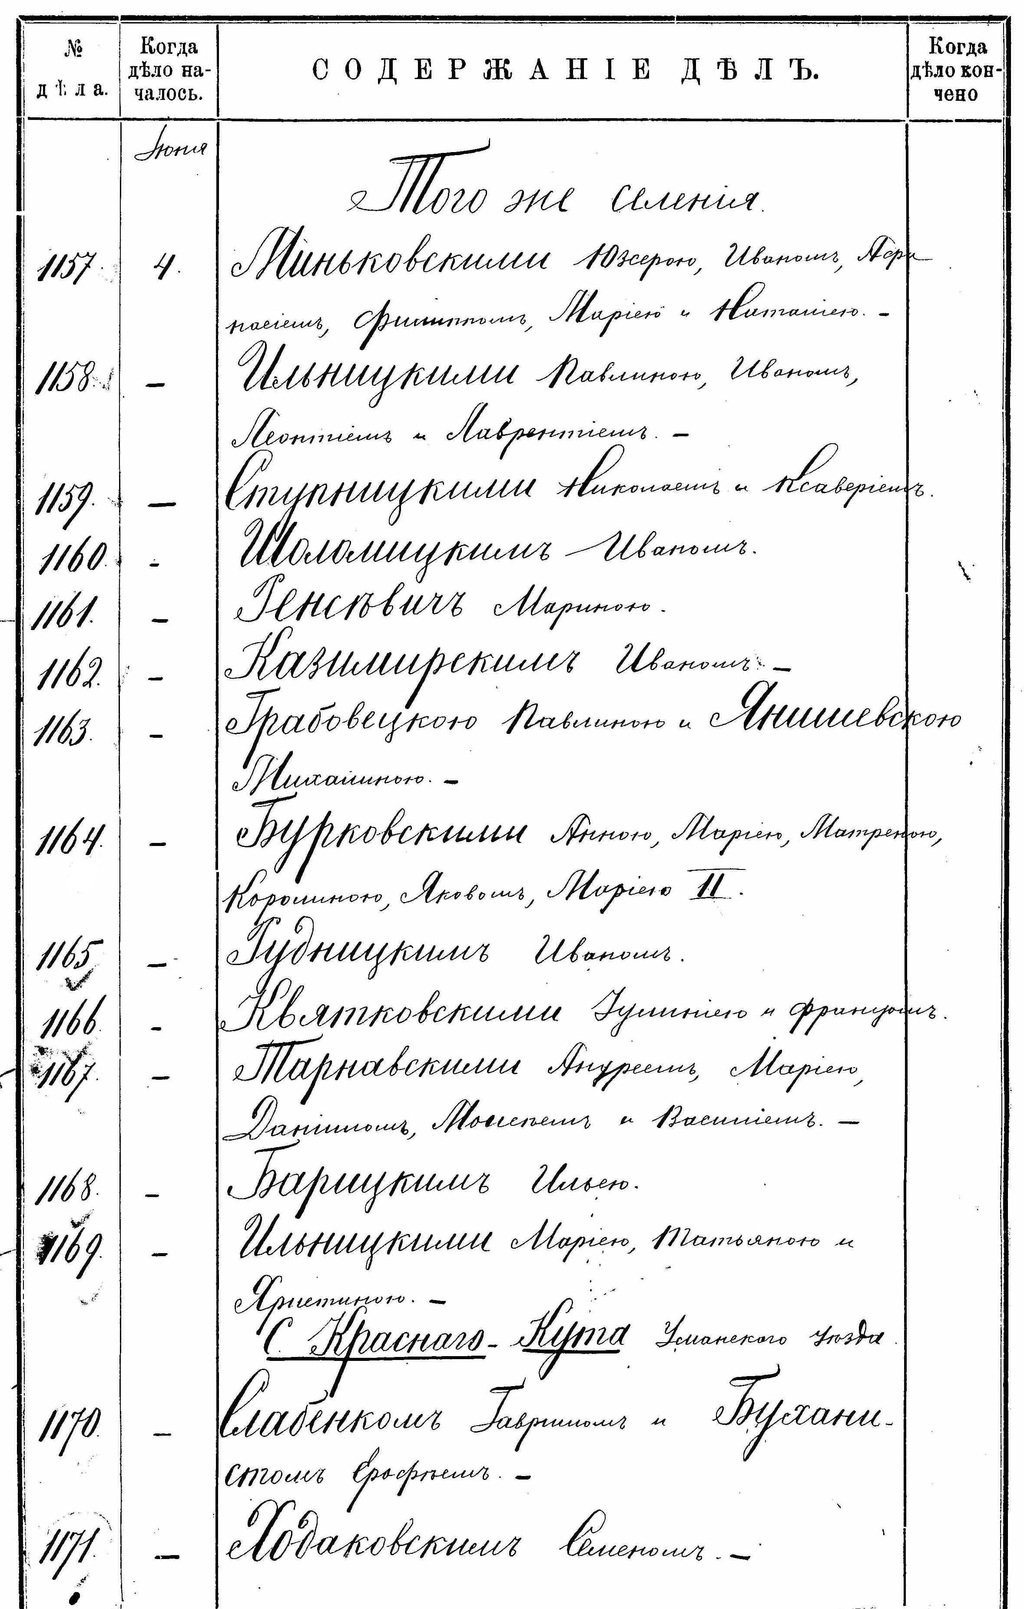 № дѣла.
Когда дѣло на-чалось.
СОДЕРЖАНІЕ ДѢЛЪ.
Когда дѣло кон-чено
Іюня
Того же селенія.
1157. 4. Миньковскими Юзефою, Иваномъ, Афа
насіемъ, Филиппомъ, Маріею и Наталіею. –
1158. – Ильницкими Павлиною, Иваномъ,
Леонтіемъ и Лаврентіемъ. –
1159. – Ступницкими Николаемъ и Ксаверіемъ.
1160. – Шоломицкимъ Иваномъ.
1161. – Генсѣвичъ Мариною.
1162. – Казимирскимъ Иваномъ. –
1163. – Грабовецкою Павлиною и Янишевскою
Михалиною. –
1164. – Бурковскими Анною, Маріею, Матреною,
Каролиною, Яковомъ, Маріею II.
1165. – Рудницкимъ Иваномъ.
1166. – Квятковскими Іуліаніею и Францомъ.
1167. – Тарнавскими Андреемъ, Маріею,
Даніиломъ, Моисѣемъ и Василіемъ. –
1168. – Барицкимъ Ильею.
1169. – Ильницкими Маріею, Татьяною и
Христиною. –
С. Краснаго-Кута Уманскаго уѣзда.
1170. – Слабенкомъ Гавриломъ и Бухани-
стомъ Ерофѣемъ. –
1171. – Ходаковскимъ Семеномъ. –